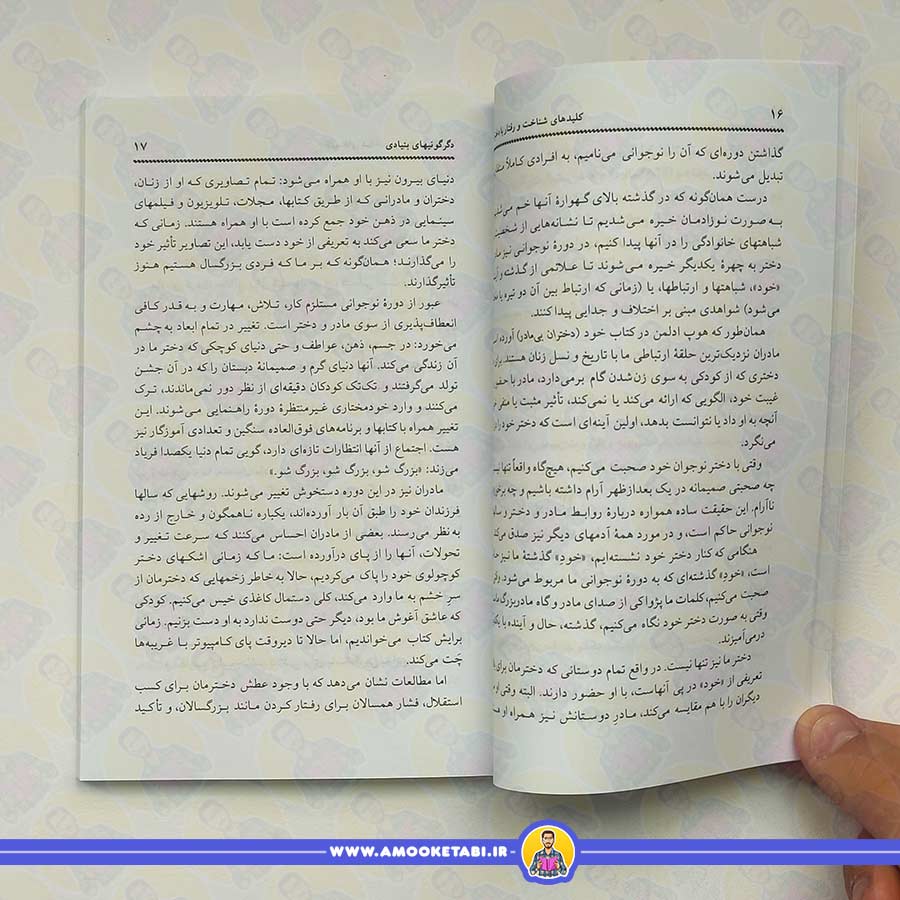 ۱۶
کلیدهای شناخت و رفتار با
گذاشتن دوره‌ای که آن را نوجوانی می‌نامیم، به افرادی کاملاً
تبدیل می‌شوند.
درست همان‌گونه که در گذشته بالای گهوارهٔ آنها خم می‌شدیم
به صورت نوزادمان خیره می‌شدیم تا نشانه‌هایی از
شباهتهای خانوادگی را در آنها پیدا کنیم، در دورهٔ نوجوانی نیز
دختر به چهرهٔ یکدیگر خیره می‌شوند تا علائمی از گذشته و
«خود»، شباهتها و ارتباطها، یا (زمانی که ارتباط بین آن دو تیره یا
می‌شود) شواهدی مبنی بر اختلاف و جدایی پیدا کنند.
همان‌طور که هوپ ادلمن در کتاب خود (دختران بی‌مادر) آورده
مادران نزدیک‌ترین حلقهٔ ارتباطی ما با تاریخ و نسل زنان هستند.
دختری که از کودکی به سوی زن‌شدن گام برمی‌دارد، مادر با
غیبت خود، الگویی که ارائه می‌کند یا نمی‌کند، تأثیر مثبت یا منفی
آنچه به او داد یا نتوانست بدهد، اولین آینه‌ای است که دختر خود را در
می‌نگرد.
وقتی با دختر نوجوان خود صحبت می‌کنیم، هیچ‌گاه واقعاً تنها
چه صحبتی صمیمانه در یک بعدازظهر آرام داشته باشیم و چه
ناآرام. این حقیقت ساده همواره دربارهٔ روابط مادر و دختر و
نوجوانی حاکم است، و در مورد همهٔ آدمهای دیگر نیز صدق می‌کند
هنگامی که کنار دختر خود نشسته‌ایم، «خود» گذشتهٔ ما نیز
است، «خودِ» گذشته‌ای که به دورهٔ نوجوانی ما مربوط می‌شود.
صحبت می‌کنیم، کلمات ما پژواکی از صدای مادر و گاه مادربزرگ
وقتی به صورت دختر خود نگاه می‌کنیم، گذشته، حال و آینده با
درمی‌آمیزند.
دختر ما نیز تنها نیست. در واقع تمام دوستانی که دخترمان برای
تعریفی از «خود» در پی آنهاست، با او حضور دارند. البته وقتی او
دیگران را با هم مقایسه می‌کند، مادرِ دوستانش نیز همراه او
دگرگونیهای بنیادی
۱۷
دنیای بیرون نیز با او همراه می‌شود: تمام تصاویری که او از زنان،
دختران و مادرانی که از طریق کتابها، مجلات، تلویزیون و فیلمهای
سینمایی در ذهن خود جمع کرده است با او همراه هستند. زمانی که
دختر ما سعی می‌کند به تعریفی از خود دست یابد، این تصاویر تأثیر خود
را می‌گذارند؛ همان‌گونه که بر ما که فردی بزرگسال هستیم هنوز
تأثیرگذارند.
عبور از دورهٔ نوجوانی مستلزم کار، تلاش، مهارت و به قدر کافی
انعطاف‌پذیری از سوی مادر و دختر است. تغییر در تمام ابعاد به چشم
می‌خورد: در جسم، ذهن، عواطف و حتی دنیای کوچکی که دختر ما در
آن زندگی می‌کند. آنها دنیای گرم و صمیمانهٔ دبستان را که در آن جشن
تولد می‌گرفتند و تک‌تک کودکان دقیقه‌ای از نظر دور نمی‌ماندند، ترک
می‌کنند و وارد خودمختاری غیرمنتظرهٔ دورهٔ راهنمایی می‌شوند. این
تغییر همراه با کتابها و برنامه‌های فوق‌العاده سنگین و تعدادی آموزگار نیز
هست. اجتماع از آنها انتظارات تازه‌ای دارد، گویی تمام دنیا یکصدا فریاد
می‌زند: «بزرگ شو، بزرگ شو، بزرگ شو.»
مادران نیز در این دوره دستخوش تغییر می‌شوند. روشهایی که سالها
فرزندان خود را طبق آن بار آورده‌اند، یکباره ناهمگون و خارج از رده
به نظر می‌رسند. بعضی از مادران احساس می‌کنند که سرعت تغییر و
تحولات، آنها را از پای درآورده است: ما که زمانی اشکهای دختر
کوچولوی خود را پاک می‌کردیم، حالا به خاطر زخمهایی که دخترمان از
سرِ خشم به ما وارد می‌کند، کلی دستمال کاغذی خیس می‌کنیم. کودکی
که عاشق آغوش ما بود، دیگر حتی دوست ندارد به او دست بزنیم. زمانی
برایش کتاب می‌خواندیم، اما حالا تا دیروقت پای کامپیوتر با غریبه‌ها
چَت می‌کند.
اما مطالعات نشان می‌دهد که با وجود عطش دخترمان برای کسب
استقلال، فشار همسالان برای رفتار کردن مانند بزرگسالان، و تأکید
WWW.AMOOKETABI.IR